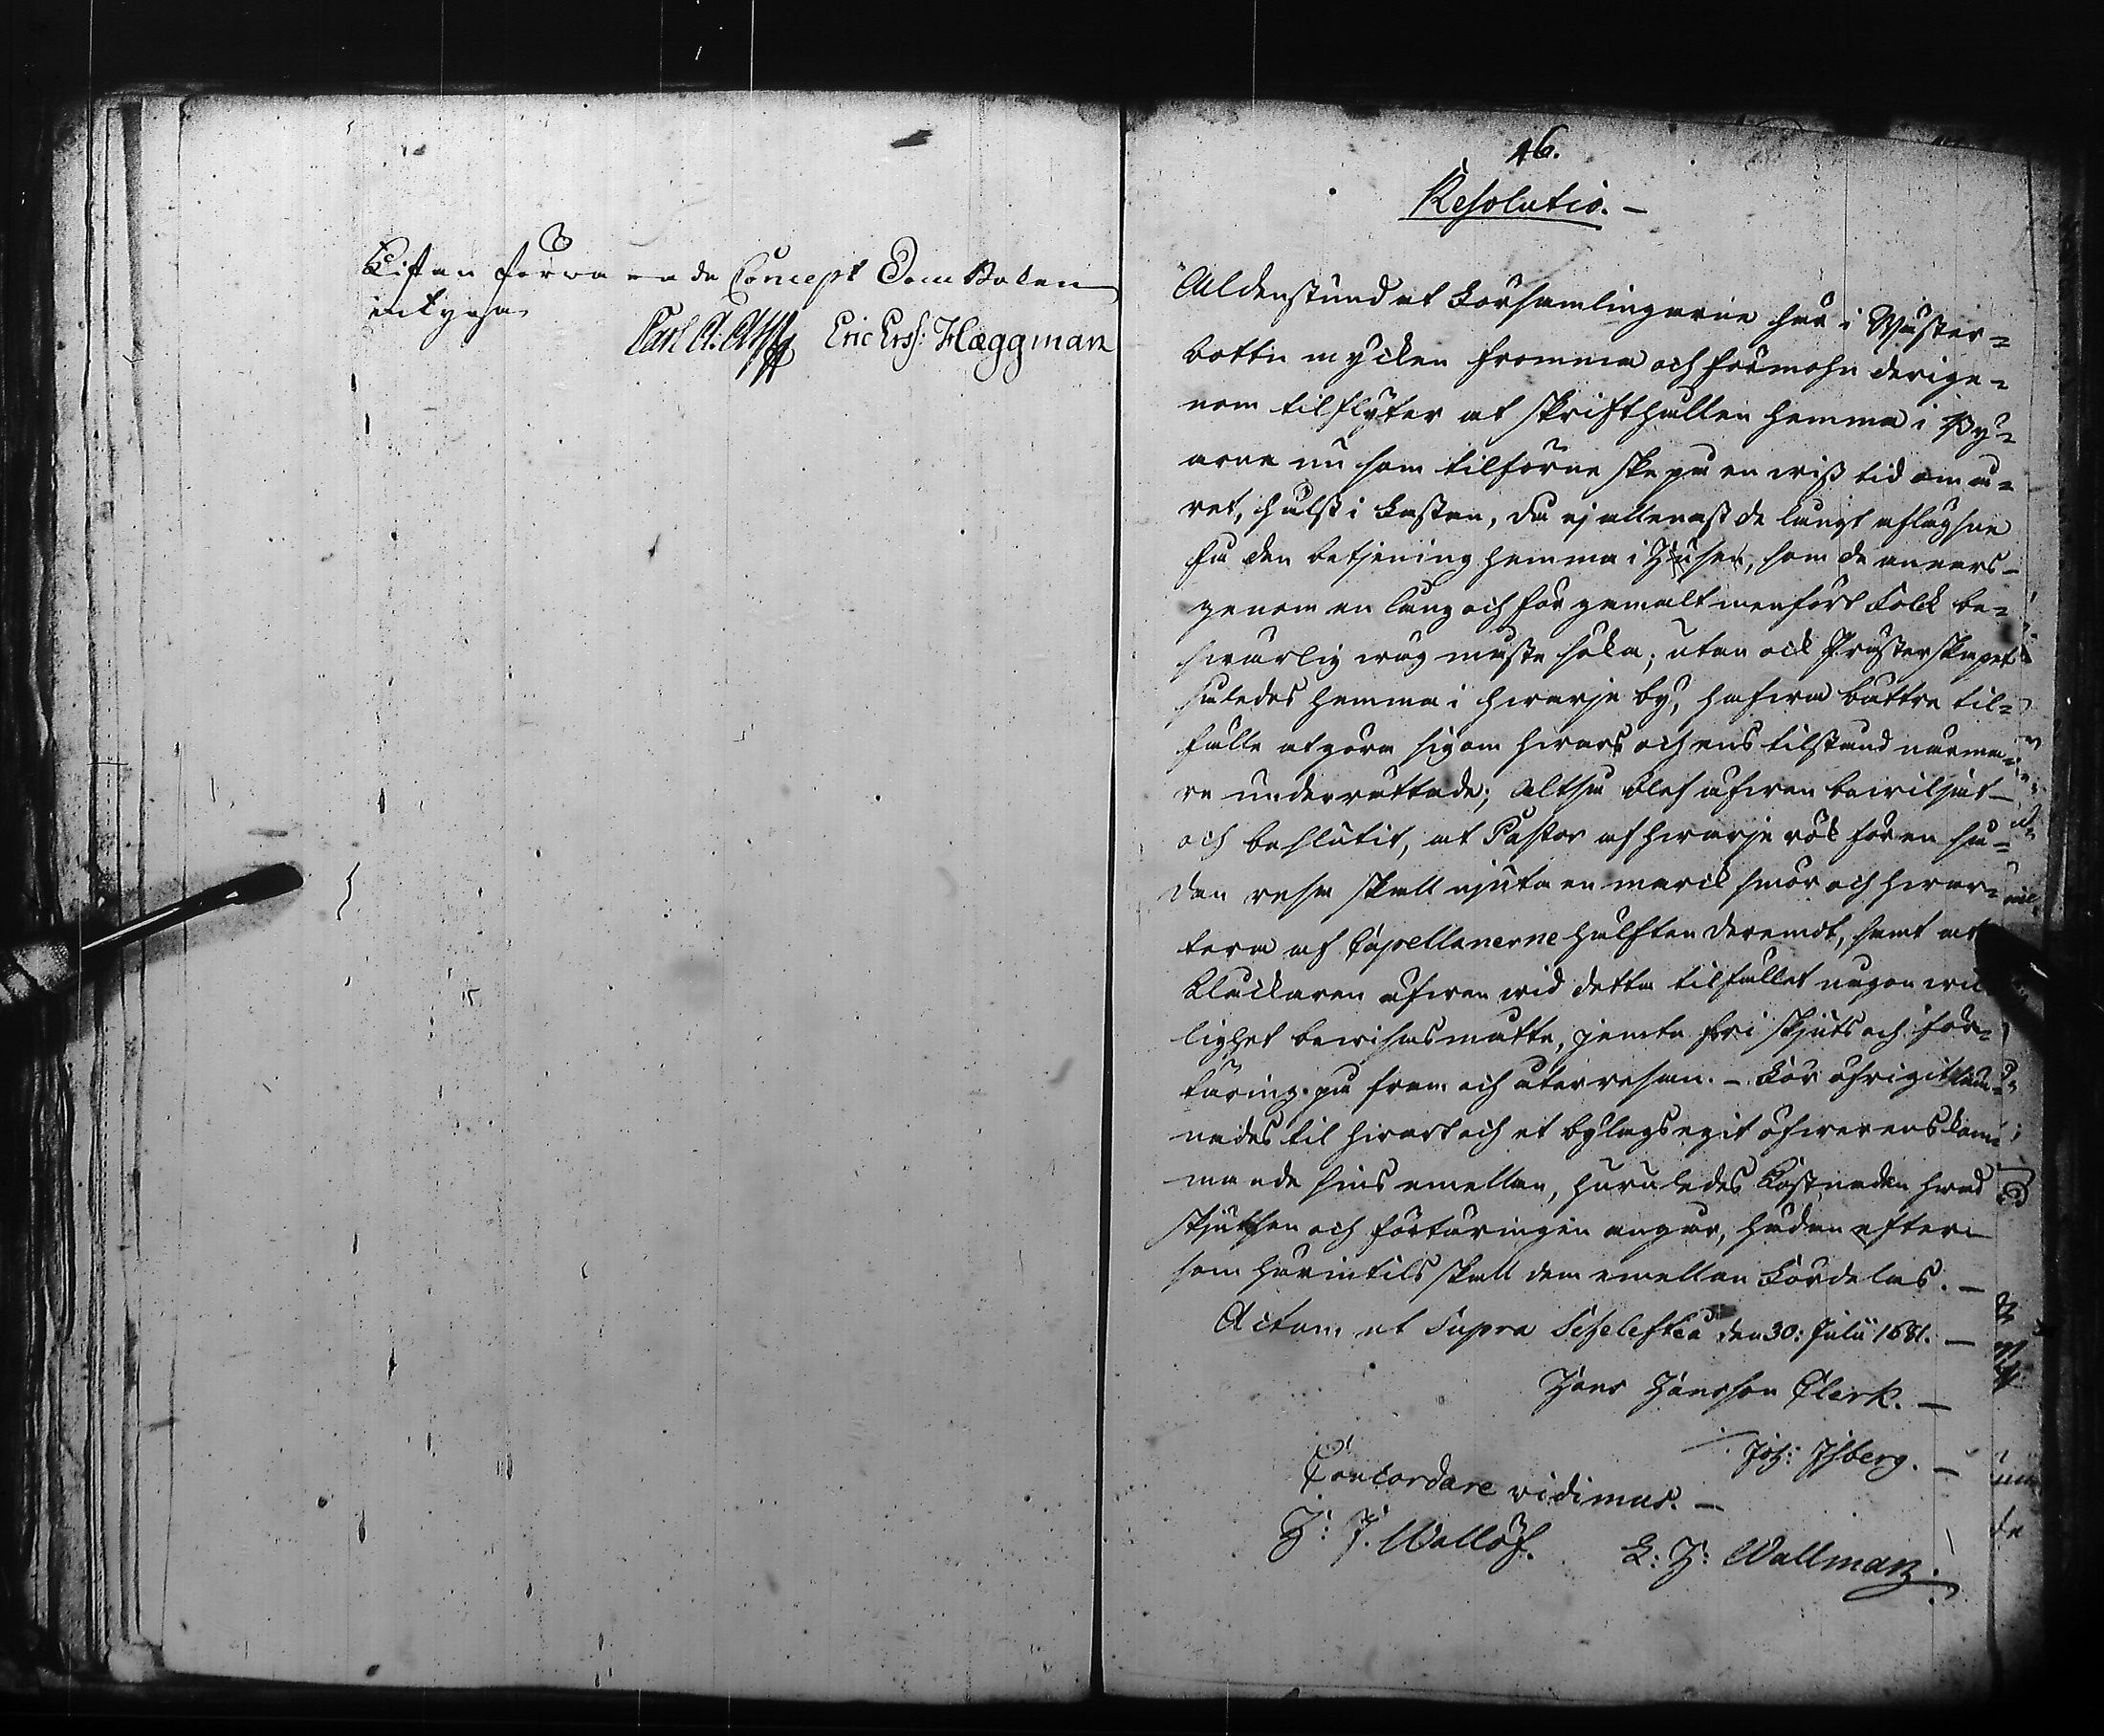 Kistan förwarade Concept Domboken
intygha
Carl A. Eric Ersß: Hæggman
16.
Resolutio. —
Aldenstund at Församlingarne här i Wäster=
botn mycken fromma och förmohn derige=
nom tilflyter at skrifthallen hemma i By=
arne nu som tilförne ske på en wiß tid om å=
ret, hälst i fastan, då ej allenast de långt aflägsne
få den betjening hemma i Huset, som de annars
genom en lång och för gamalt menfört Folck be=
swärlig wäg måste söka; utan ock Prästerskapet
således hemma i hwarje by, hafwa bättre til=
fälle at göra sig om hwars och ens tilstånd närma=
re underrättade; Altså blef äfwen bewiljat
och beslutit, at Pastor af hwarje rök för en så=
dan resa skall njuta en marck smör och hwar=
tera af Capellanerne hälften deremot, samt at
Klockaren äfwen wid detta tilfället någon wil
lighet bewisas måtte, jemte fri skjuts och för=
täring på fram och återresan. — För öfrigit läm=
nades til hwart och et bylags egit öfwerenskom=
mande sins emellan, huruledes Kostnaden hwad
skjutsen och förtäringen angår, hädanefter
som härintils skall dem emellan fördelas. —
Actum ut Supra Schelefteå den 30: Julii 1681. —
Hans Hansson Clerk. —
Joh: Isberg. —
Concordare vidimus. —
H: J. Wallöf. E: H: Wallman.